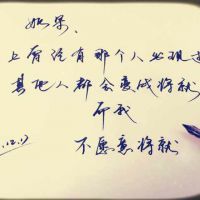 如果,
上有没有那个人出现过
其他人都会变成将就
而我
不愿意将就
.12.17